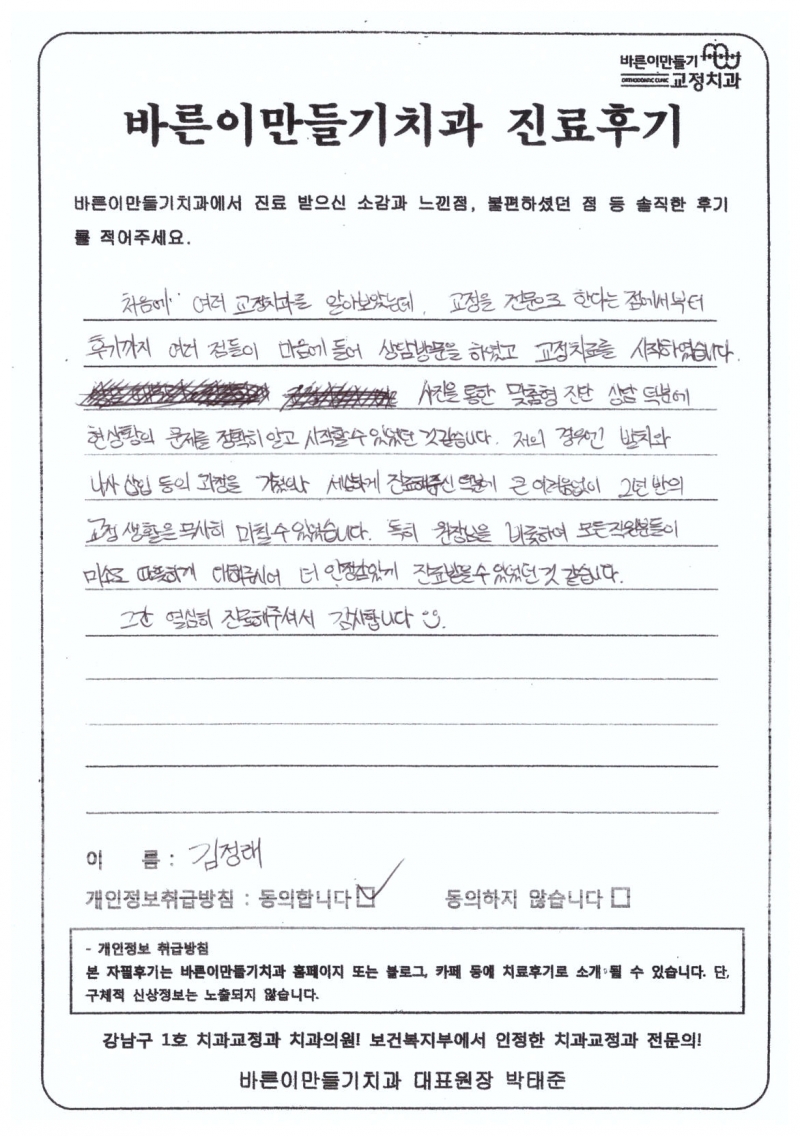 바른이만들기
ORTHODONTIC CLINIC 교정치과
바른이만들기치과 진료후기
바른이만들기치과에서 진료 받으신 소감과 느낀점, 불편하셨던 점 등 솔직한 후기
를 적어주세요.
처음에 여러 교정치과를 알아보았는데, 교정을 전문으로 한다는 점에서부터
후기까지 여러 점들이 마음에 들어 상담방문을 하였고 교정치료를 시작하였습니다.
사진을 통한 맞춤형 진단 상담 덕분에
현상황의 문제를 정확히 알고 시작할 수 있었던 것 같습니다. 저의 경우엔 발치와
나사 삽입 등의 과정을 가졌으나 세심하게 진료해주신 덕분에 큰 어려움없이 2년 반의
교정 생활을 무사히 마칠 수 있었습니다. 특히 원장님을 비롯하여 모든 직원분들이
미소로 따뜻하게 대해주시어 더 안정감있게 진료받을 수 있었던 것 같습니다.
그간 열심히 진료해주셔서 감사합니다
이 름 : 김정래
개인정보취급방침 : 동의합니다 동의하지 않습니다
- 개인정보 취급방침
본 자필후기는 바른이만들기치과 홈페이지 또는 블로그, 카페 등에 치료후기로 소개 될 수 있습니다. 단,
구체적 신상정보는 노출되지 않습니다.
강남구 1호 치과교정과 치과의원! 보건복지부에서 인정한 치과교정과 전문의!
바른이만들기치과 대표원장 박태준